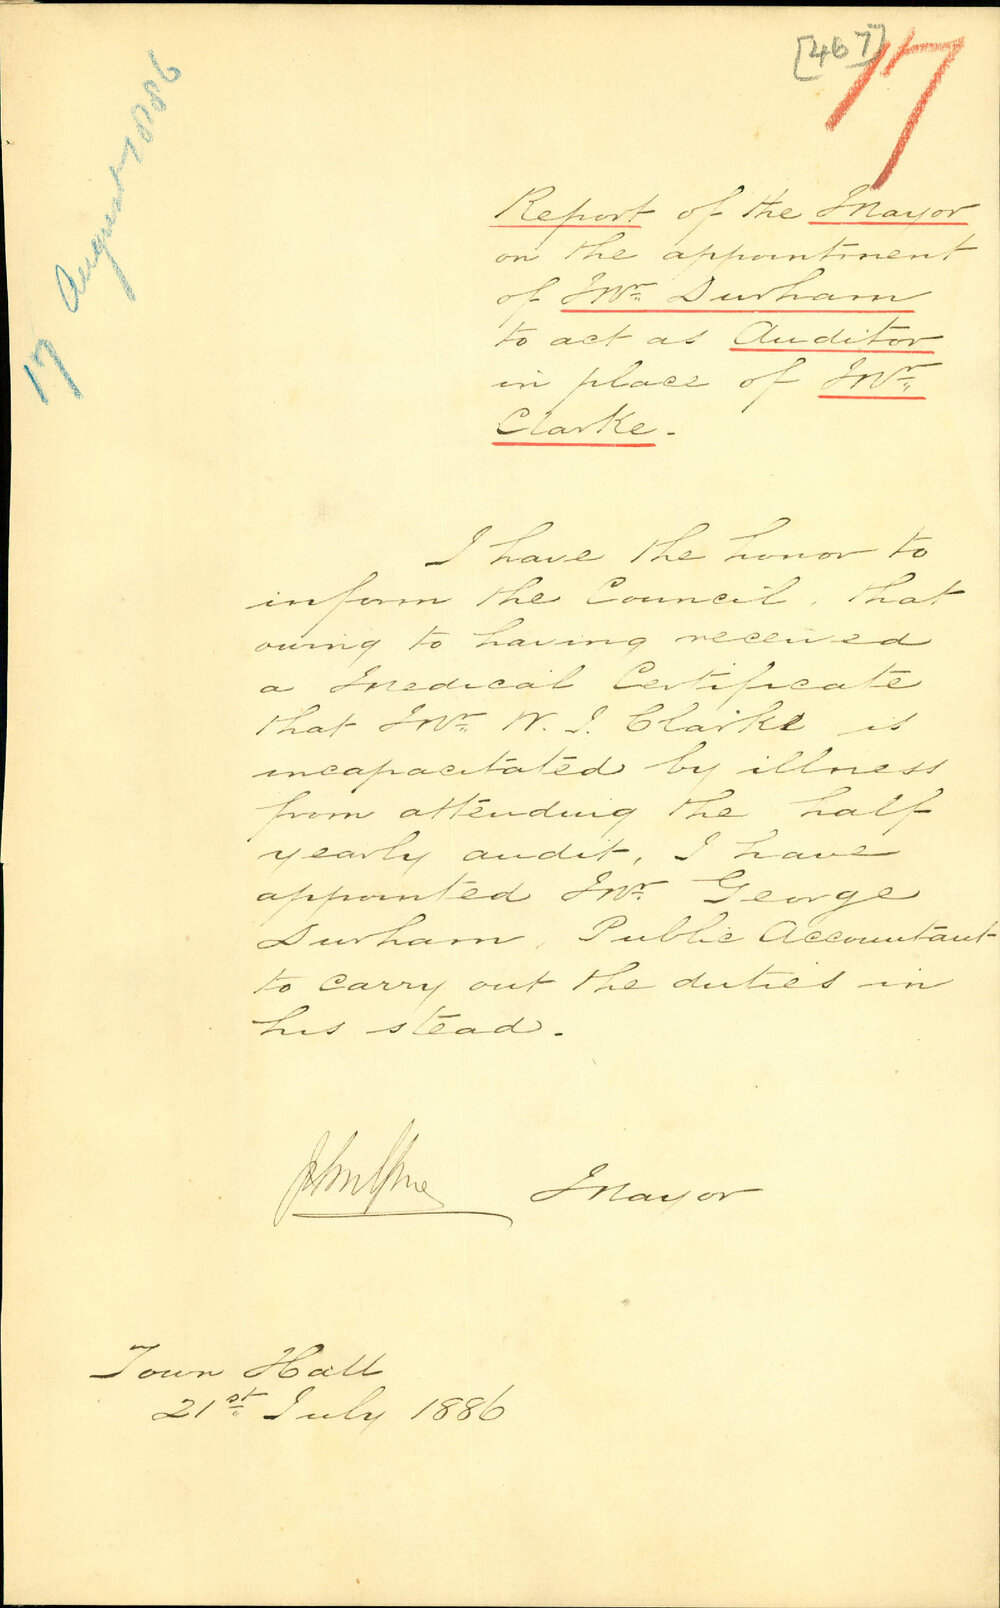 [467]
17
17 August 1886
Report of the Mayor
on the appointment
of Mr. Durham
to act as Auditor
in place of Mr.
Clarke.
I have the honor to
inform the Council, that
owing to having received
a Medical Certificate
that Mr. W. J. Clarke is
incapacitated by illness
from attending the half
yearly audit, I have
appointed Mr. George
Durham, Public Accountant
to carry out the duties in
his stead.
Mayor
Town Hall
21st July 1886